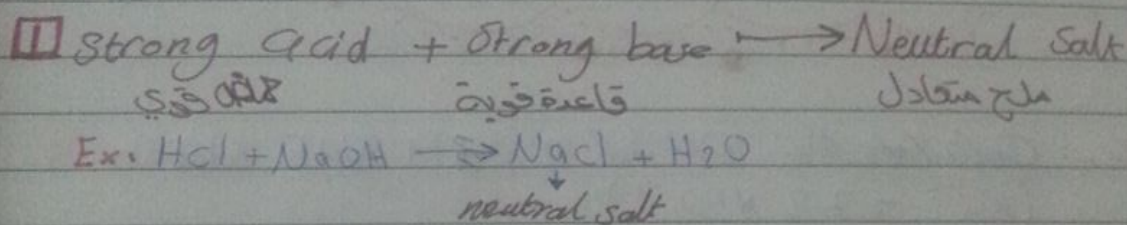 1 Strong acid + Strong base → Neutral Salt
حامض قوي قاعدة قوية ملح متعادل
Ex. HCl + NaOH → NaCl + H2O
↓
neutral salt